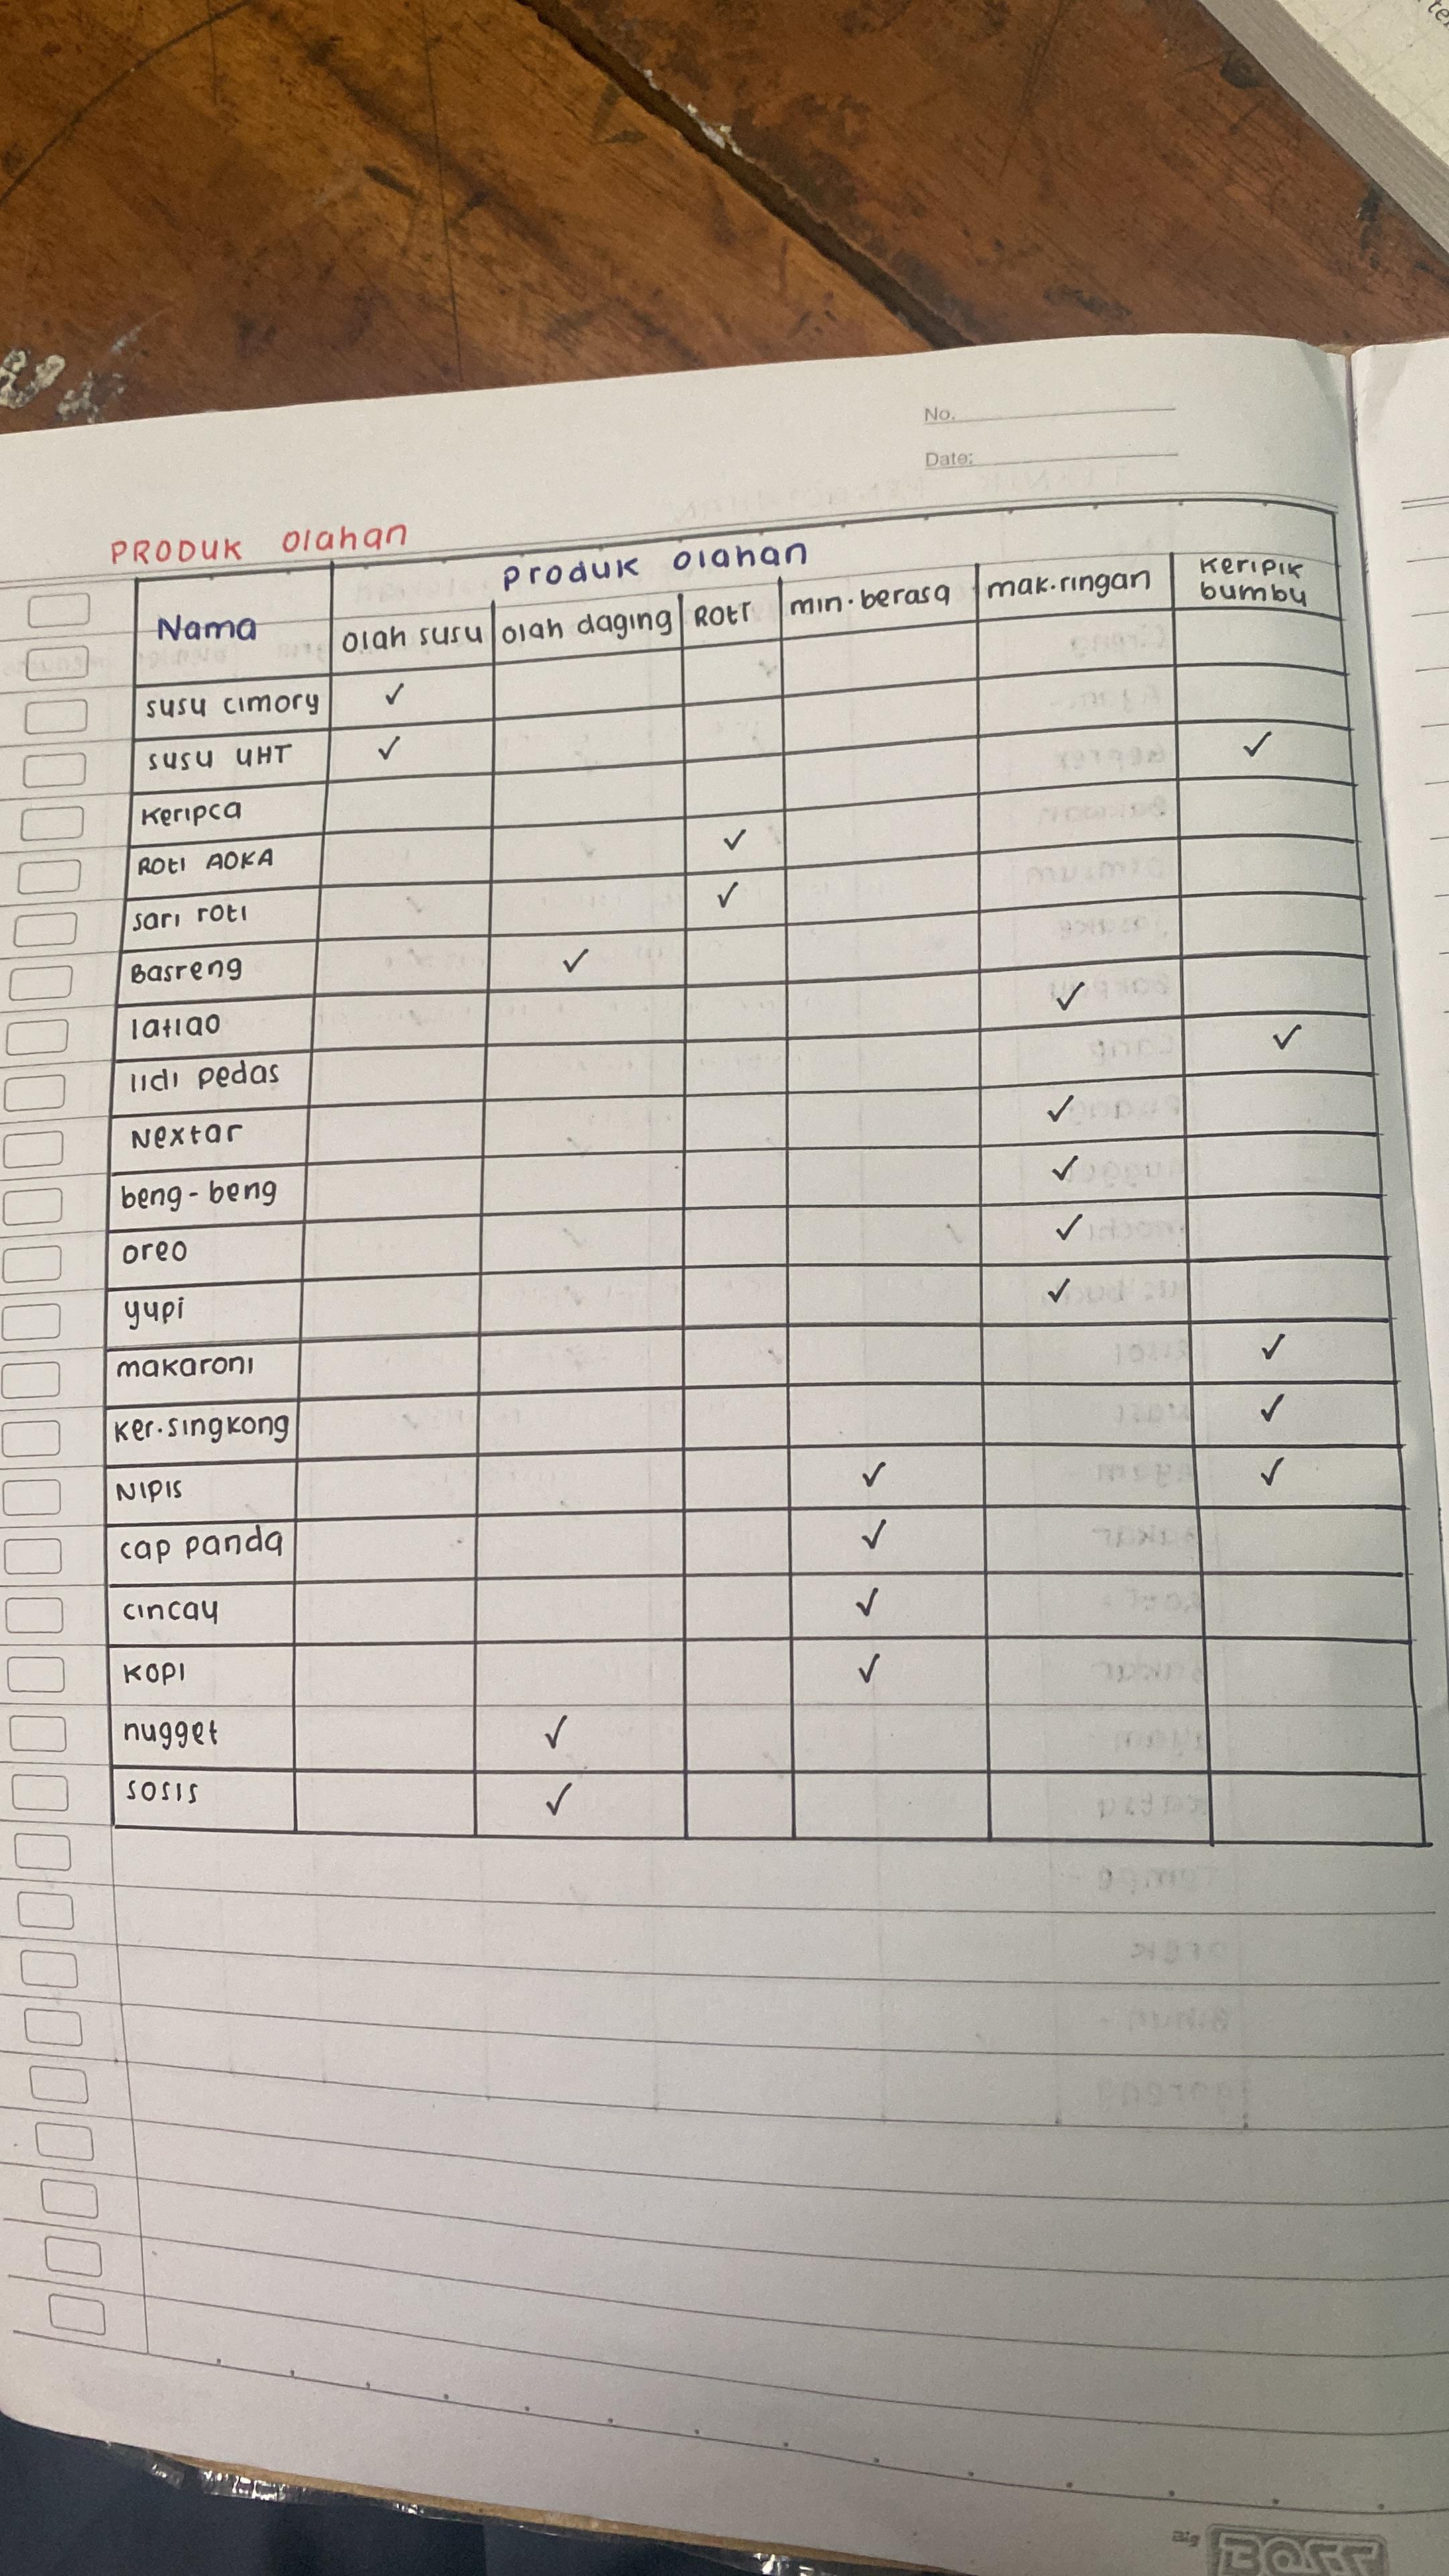 No.
Date:
PRODUK Olahan
Nama Produk Olahan
Olah susu Olah daging Roti min.berasa mak.ringan Keripik bumbu
susu cimory ✓
susu UHT ✓
Keripca ✓
Roti AOKA ✓
sari roti ✓
Basreng ✓
latiao ✓
lidi pedas ✓
Nextar ✓
beng-beng ✓
oreo ✓
yupi ✓
makaroni ✓
ker.singkong ✓
NIPIS ✓ ✓
cap panda ✓
cincau ✓
KOPI ✓
nugget ✓
sosis ✓
Big BOSS